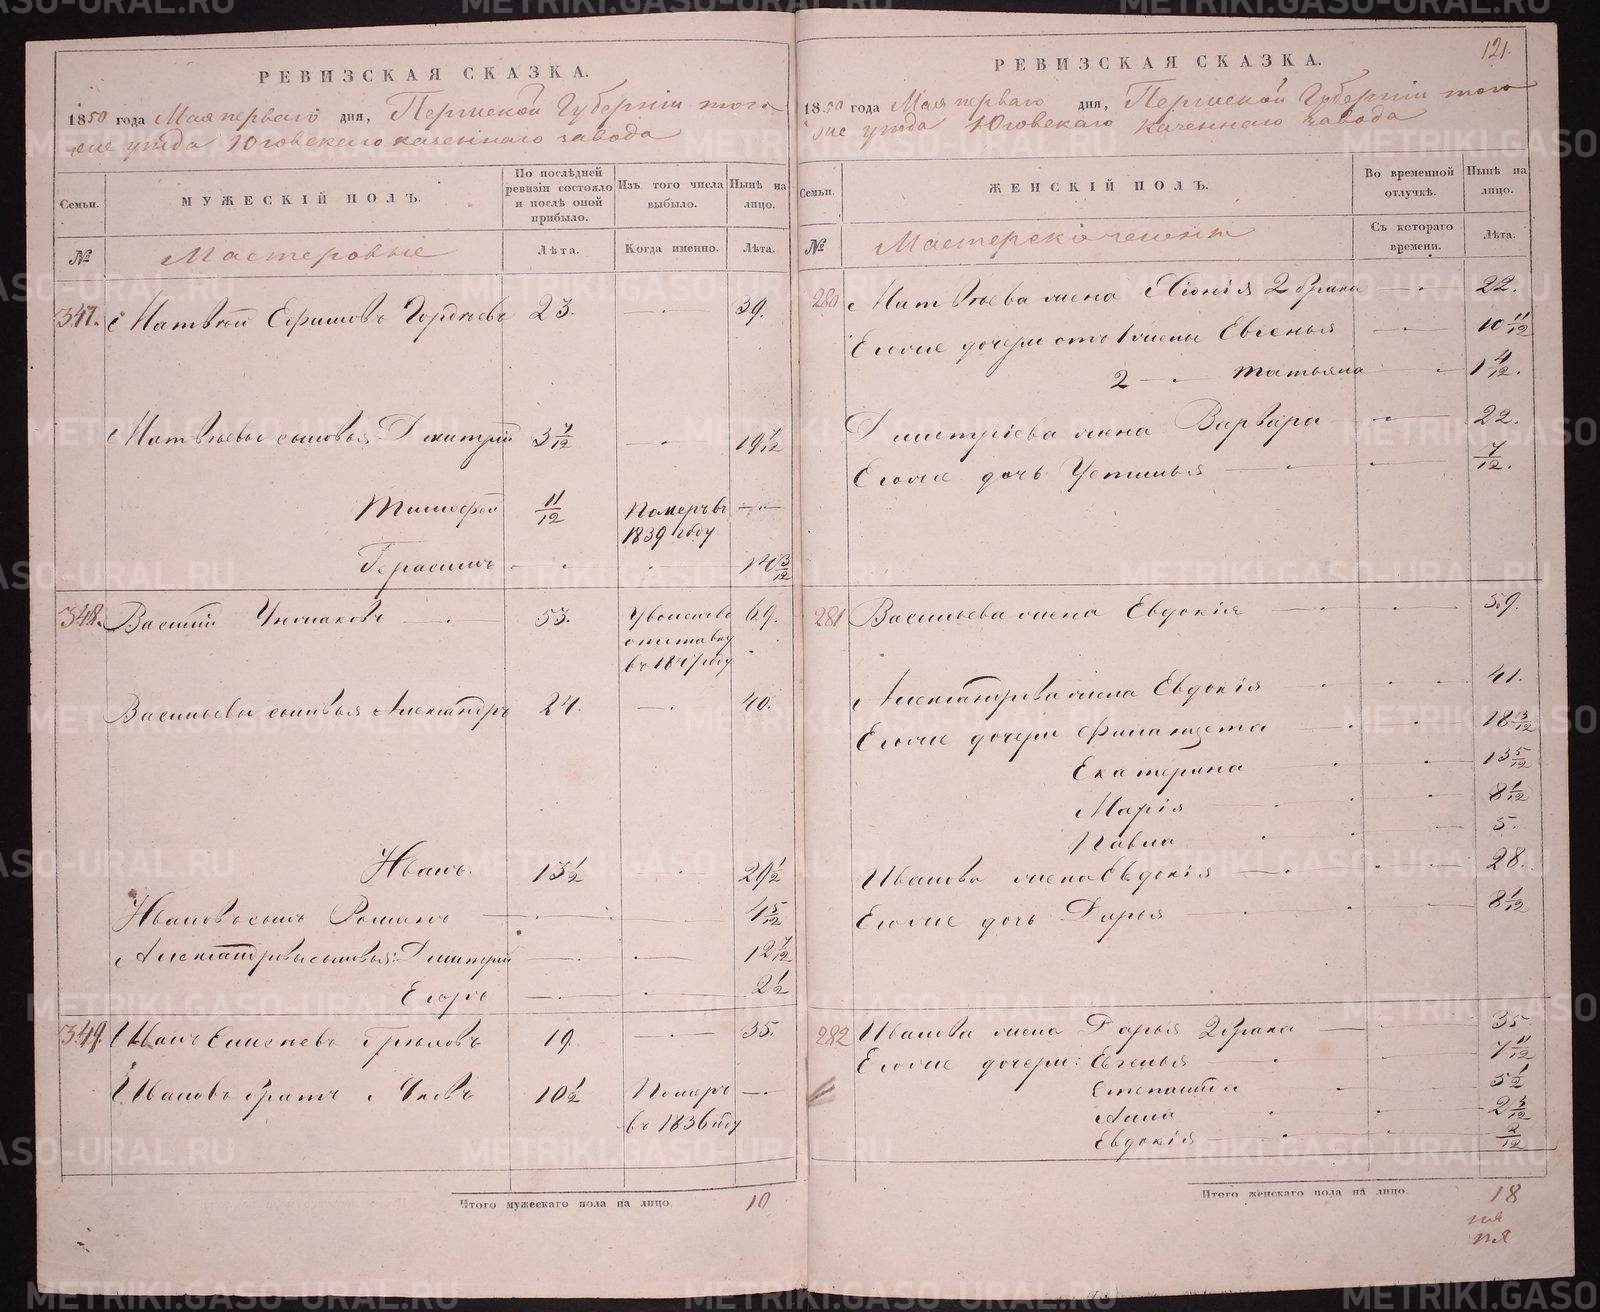 РЕВИЗСКАЯ СКАЗКА.
1850 года Мая перваго дня, Пермской Губерніи того
же уезда Юговскаго казеннаго завода
Семьи.
МУЖЕСКІЙ ПОЛЪ.
По послѣдней ревизіи состояло и послѣ оной прибыло.
Изъ того числа выбыло.
Нынѣ на лицо.
№
Мастеровые
Лѣта.
Когда именно.
Лѣта.
347. Матвей Ефимовъ Гордеевъ 23. — 39.
Матвеевы сыновья Дмитрій 3 7/12 — 19 7/12
Тимофей 11/12 Померъ въ —
1839 году
Герасимъ — 3/12
348. Василій 53. Уволенъ въ 69.
отставку
въ 1847 году
Васильевы сыновья Александръ 24. — 40.
Иванъ 13 1/2 — 29 1/2
Ивановъ сынъ Романъ — 4 5/12
Александровы сыновья: Дмитрій — 12 7/12
Егоръ — 2 1/2
349. Иванъ Елисеевъ 19. — 35.
Ивановъ братъ Яковъ 10 1/2 Померъ —
въ 1836 году
Итого мужескаго пола на лицо. 10
121.
РЕВИЗСКАЯ СКАЗКА.
1850 года Мая перваго дня, Пермской Губерніи того
же уезда Юговскаго казеннаго завода
Семьи.
ЖЕНСКІЙ ПОЛЪ.
Во временной отлучкѣ.
Нынѣ на лицо.
№
Мастерскіе жены
Съ котораго времени.
Лѣта.
280 Матвеева жена 2 брака — 22.
Его же дочери отъ 1 жены Евгенья — 10 11/12
2 — Татьяна — 1 4/12.
Дмитріева жена Варвара — 22.
Его же дочь Устинья — 7/12.
281 Васильева жена Евдокія — 59.
Александрова жена Евдокія — 41.
Его же дочери — 18
Екатерина — 13 5/12
Марія — 8 1/12
Павла — 5.
Иванова жена Евдокія — 28.
Его же дочь Дарья — 8 1/12
282 Иванова жена Дарья 2 брака — 35
Его же дочери: Евгенья 7 11/12
Степанида 5 1/2
Анна 2 3/12
Евдокія 2/12
Итого женскаго пола на лицо. 18
METRIKI.GASO-URAL.RU